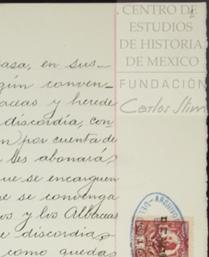 CENTRO DE
ESTUDIOS
DE HISTORIA
DE MEXICO
FUNDACIÓN
Carlos Slim
casa, en sus-
gún conven-
aceas y herede
discordia, con
por cuenta de
les abonara
que se encarguen
ue se convenga
os y los Albaceas
e discordia,
como queda
ARCHIVO